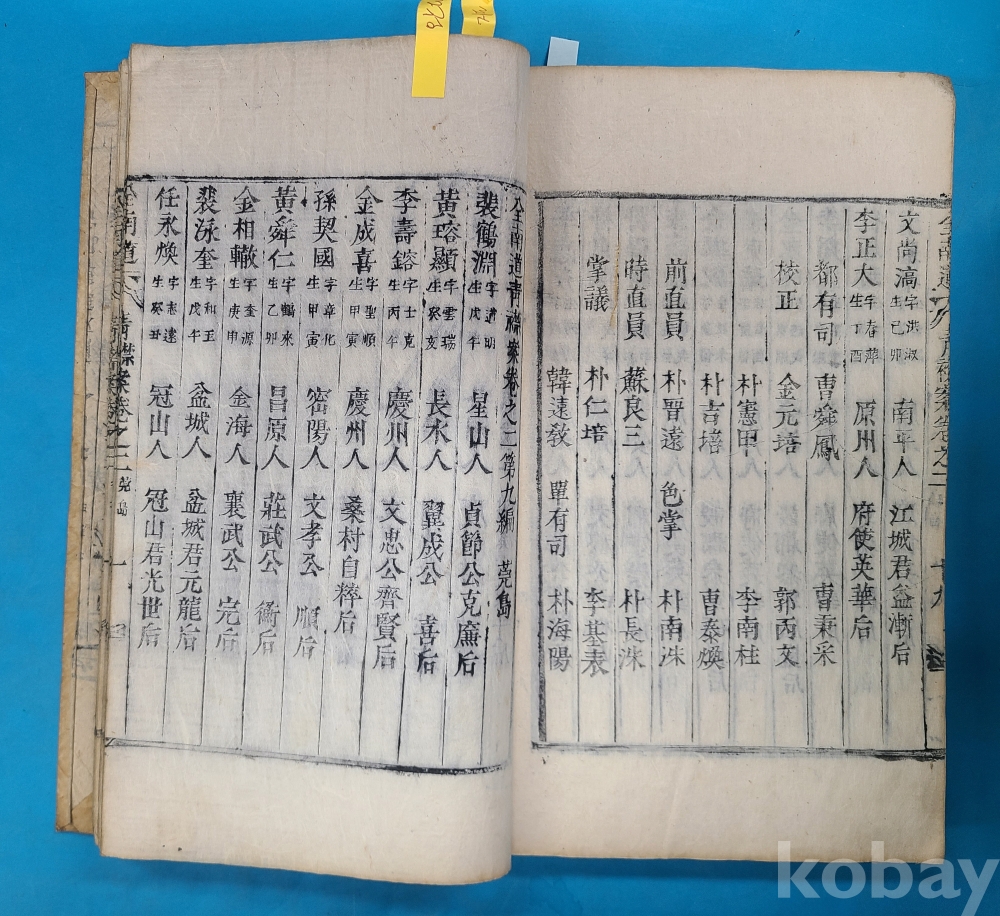 文尚滈 字洪淑 生己卯 南平人 江城君益漸后
李正大 字春 生丁酉 原州人 府使英華后
都有司 曹舜鳳 曹秉采
校正 金元培 郭丙文
朴憲甲 李南柱
朴吉培 曹泰煥
前直員 朴晋遠 色掌 朴南洙
時直員 蘇良三 朴長洙
掌議 朴仁培 李基表
韓遠教 單有司 朴海陽
全南道青襟案卷之二 第九編 莞島
裴鶴淵 字道明 生戊午 星山人 貞節公克廉后
黃瑢顯 字雲瑞 生癸亥 長水人 翼成公 喜后
李壽鎔 字士克 生丙午 慶州人 文忠公齊賢后
金成喜 字聖順 生甲寅 慶州人 桑村自粹后
孫契國 字章化 生甲寅 密陽人 文孝公 順后
黃舜仁 字鳳來 生乙卯 昌原人 莊武公 衡后
金相轍 字奎源 生庚申 金海人 襄武公 完后
裴泳奎 字和玉 生戊午 盆城人 盆城君元龍后
任永煥 字志遠 生癸丑 冠山人 冠山君光世后
全南道 青襟案卷之二 莞島 一
kobay